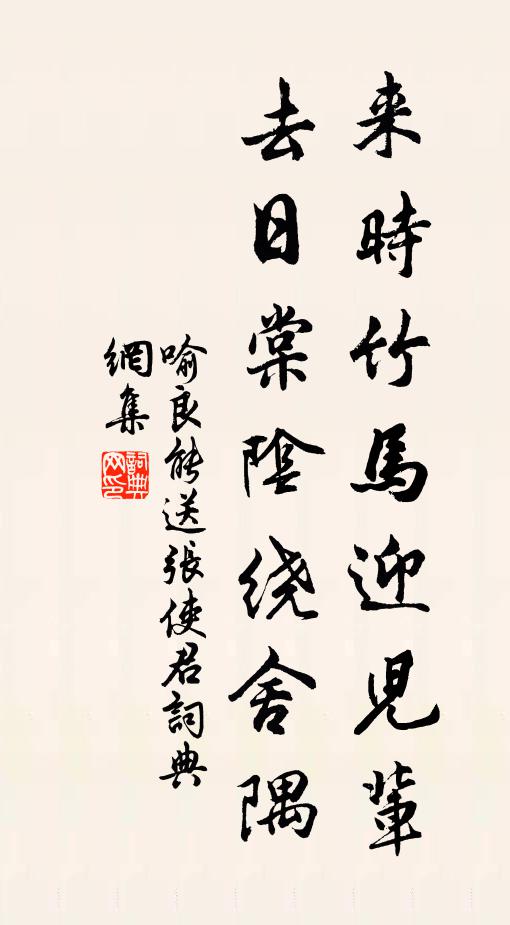 来時竹馬迎児輩
去日棠陰绕舍隅
喻良能送張使君詞典
網集
詞典
网印